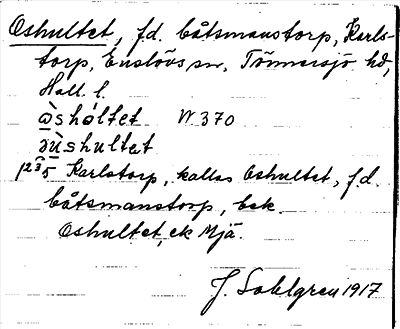 Oshultet, f.d. båtsmanstorp, Karls-
torp, Enslövs sn, Tönnersjö hd,
Hall. l.
ɷ̀shóltet W 370
ɷùshultet
Karlstorp, kallas Oshultet, f.d.
båtsmanstorp, bek.
Oshultet, ek Mjä.
J. Sahlgren 1917